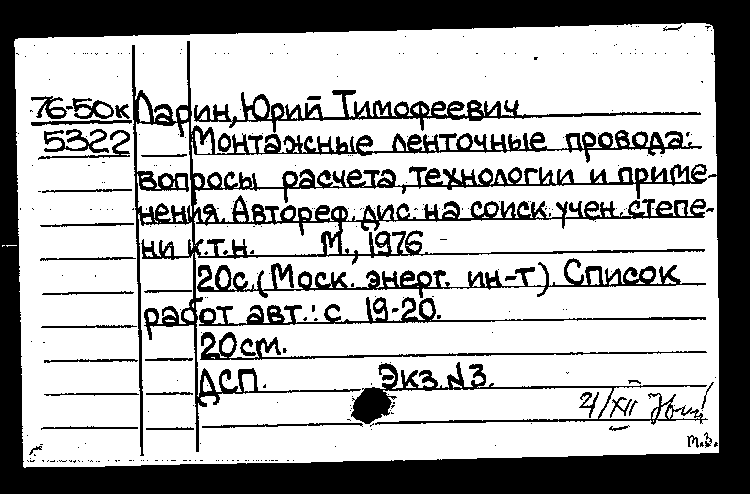 76-50к Ларин, Юрий Тимофеевич
5322 Монтажные ленточные провода:
вопросы расчета, технологии и приме-
нения. Автореф. дис. на соиск. учен. степе-
ни к.т.н. М., 1976
20с. (Моск. энерг. ин-т). Список
работ авт.: с. 19-20.
20см.
ДСП. Экз. N3.
21/XII
т.з.